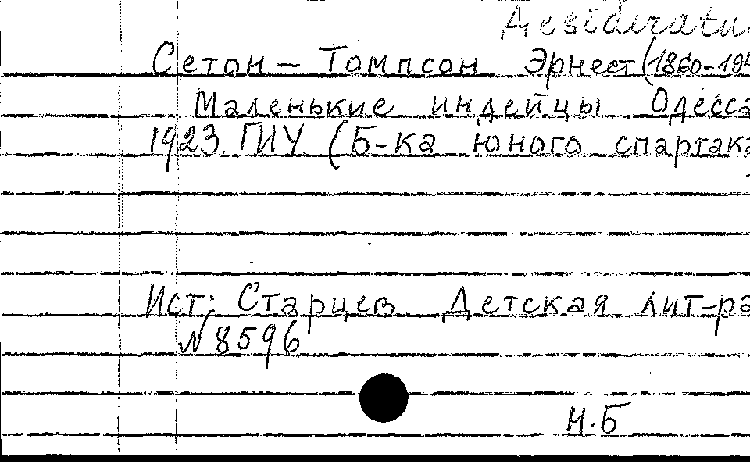 Desideratu
Сетон - Томпсон Эрнест (1860-194
Маленькие индейцы Одесса
1923 ГИУ (Б-ка юного спартака
Ист: Старцев Детская лит-ра
№ 8596
Н.Б